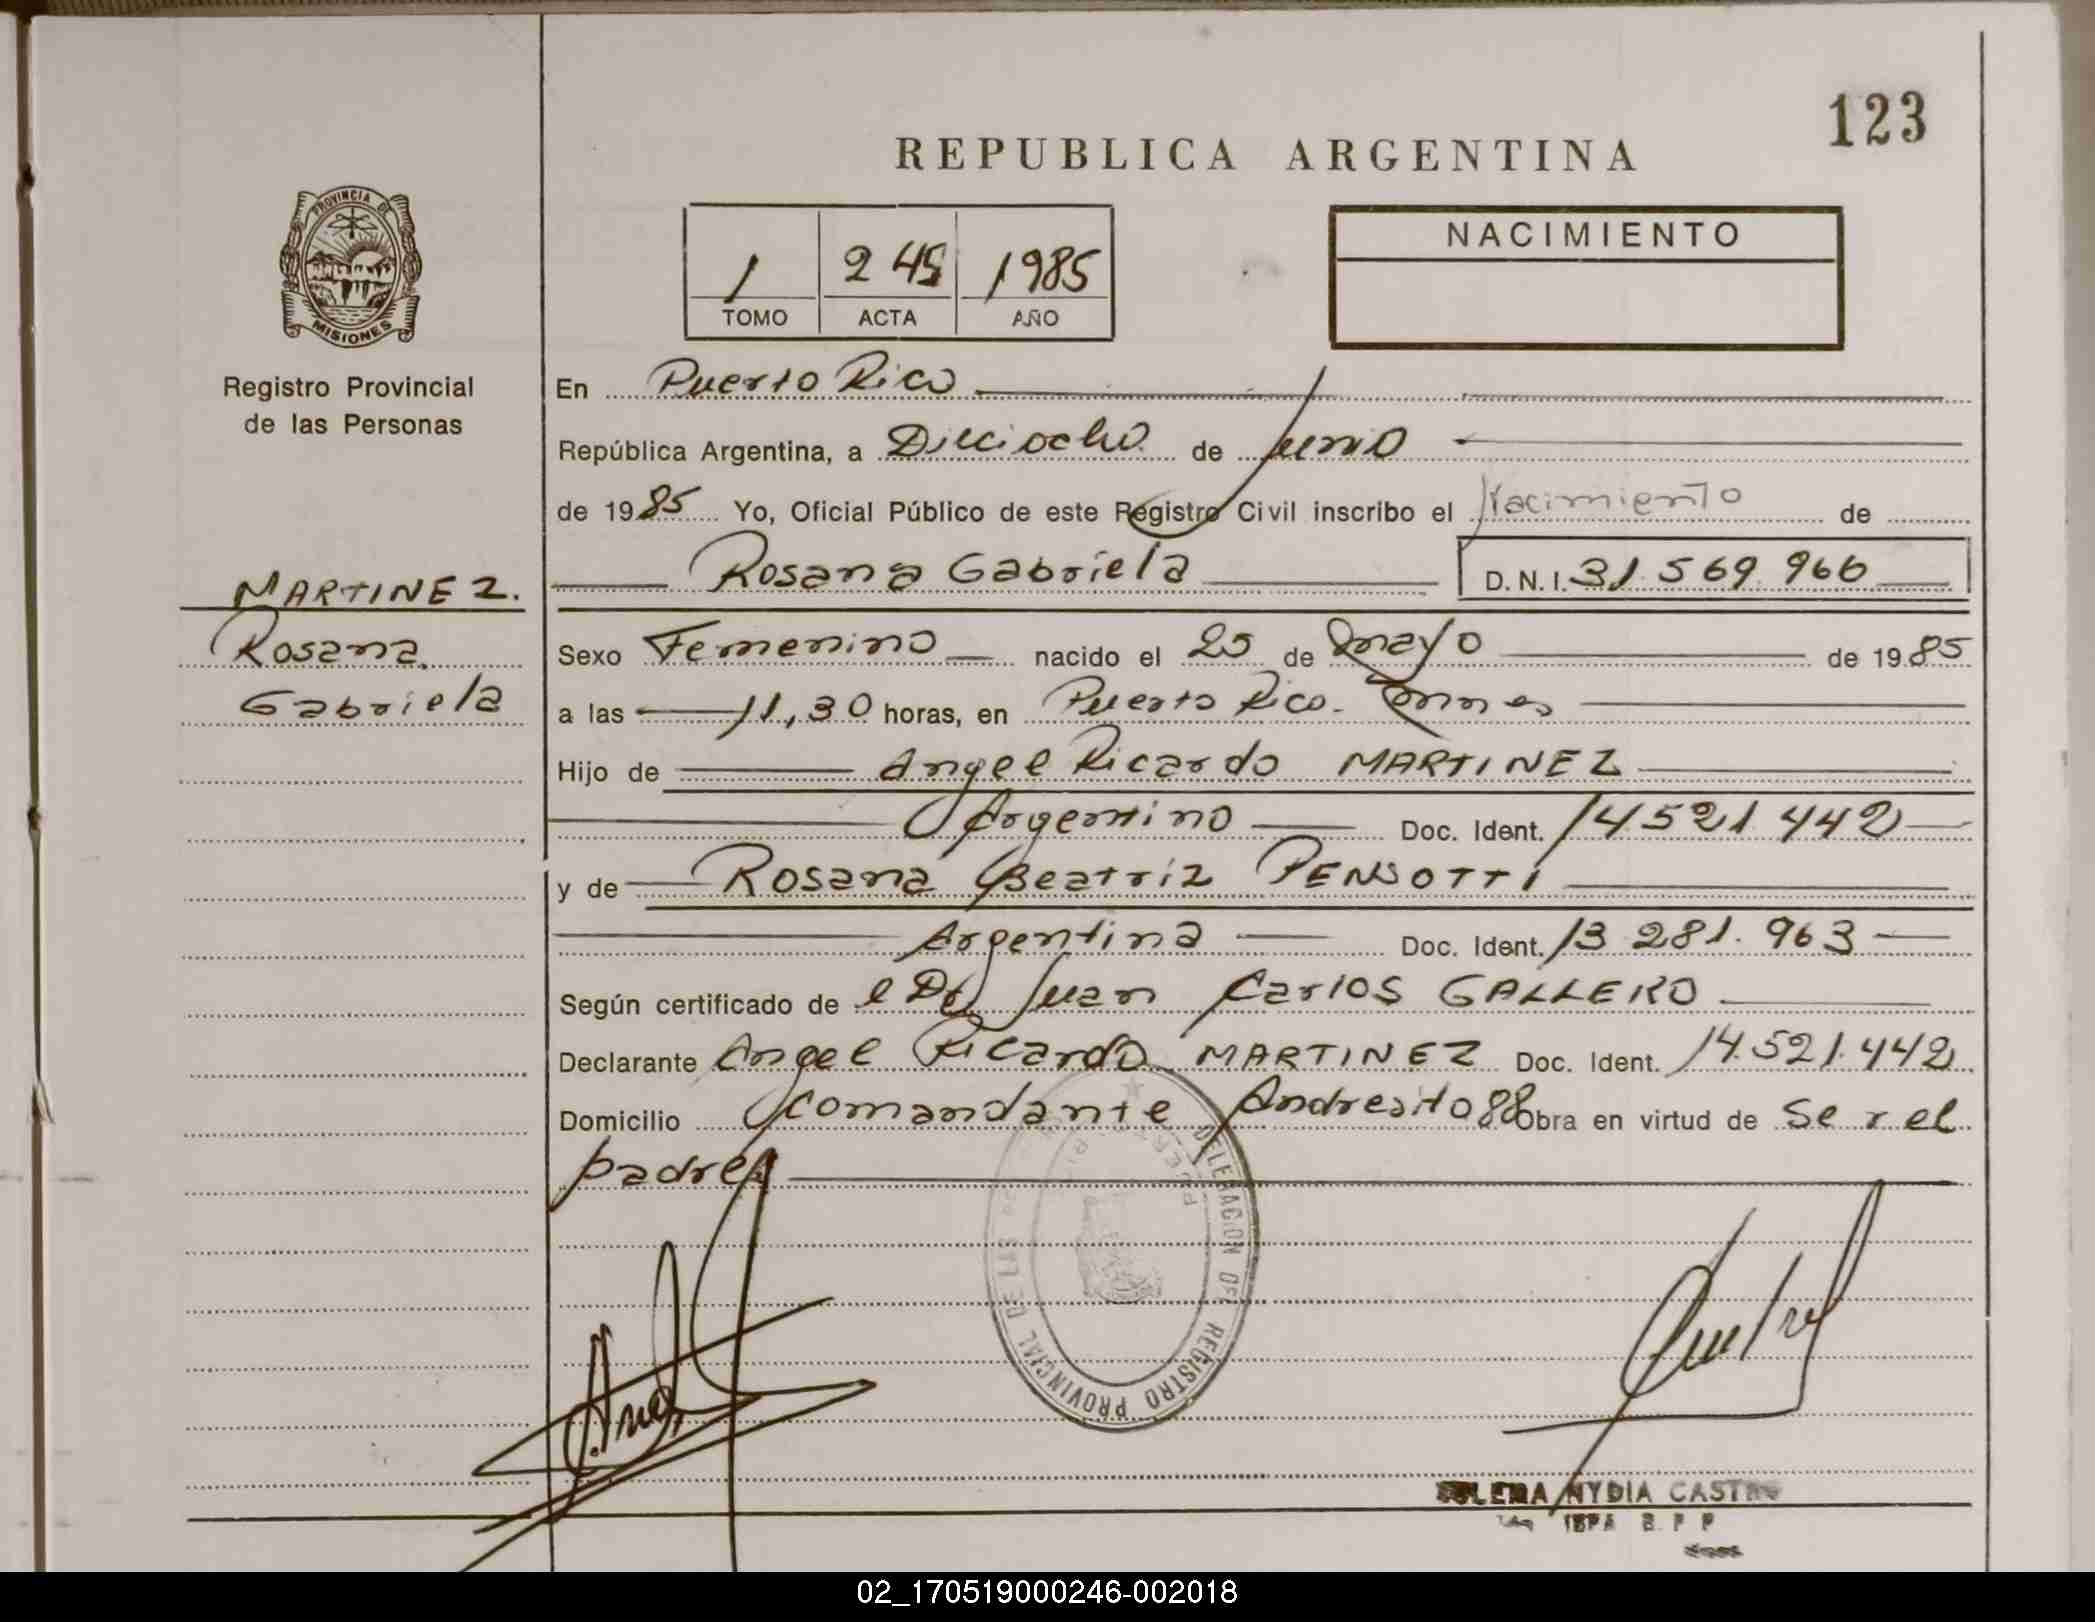 123
REPUBLICA ARGENTINA
PROVINCIA DE
MISIONES
Registro Provincial
de las Personas
1 245 1985
TOMO ACTA AÑO
NACIMIENTO
En Puerto Rico
República Argentina, a Dieciocho de Junio
de 1985 Yo, Oficial Público de este Registro Civil inscribo el Nacimiento de
Rosana Gabriela D.N.I. 31.569.966
MARTINEZ.
Rosana
Gabriela
Sexo Femenino nacido el 25 de mayo de 1985
a las 11,30 horas, en Puerto Rico.
Hijo de Angel Ricardo MARTINEZ
Argentino Doc. Ident. 14.521.442
y de Rosana Beatriz PENSOTTI
Argentina Doc. Ident. 13.281.963
Según certificado de el Dr Juan Carlos GALLERO
Declarante Angel Ricardo MARTINEZ Doc. Ident. 14.521.442
Domicilio Comandante Andresito 88 Obra en virtud de Ser el
padre
DELEGACION DEL REGISTRO PROVINCIAL DE LAS
NYDIA CASTRO
02_170519000246-002018